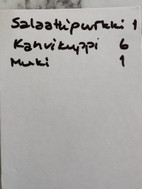 Salaattipurkki 1
Kahvikuppi 6
Muki 1